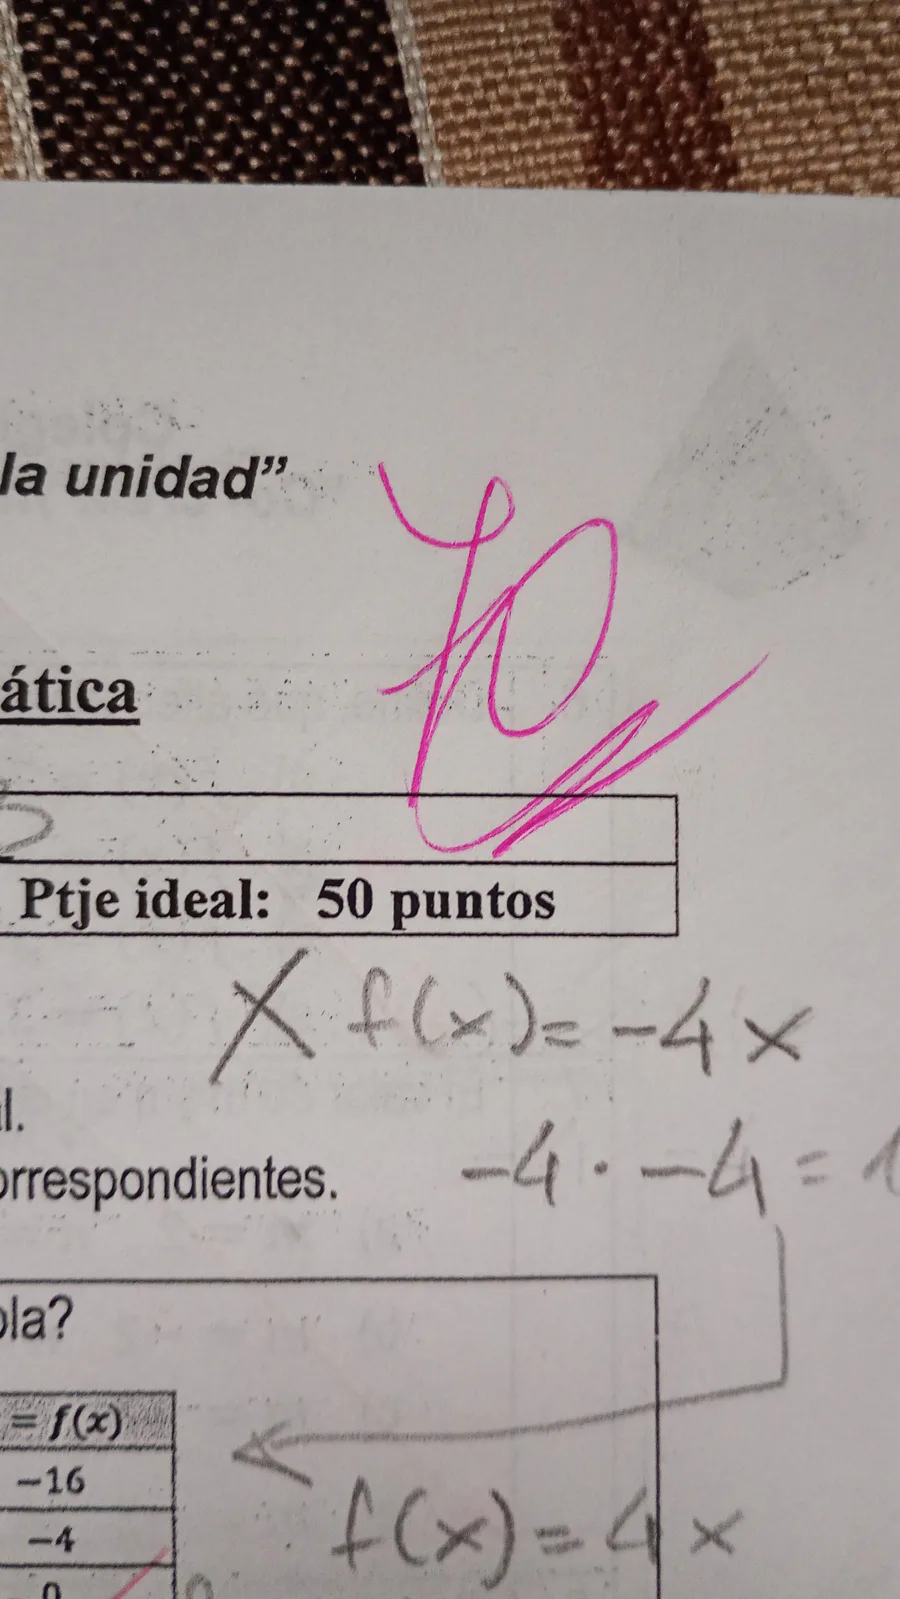 la unidad”
7,0
ática
Ptje ideal: 50 puntos
X f(x)= -4x
l.
orrespondientes.
-4 · -4 = 1
ola?
= f(x)
-16
-4
f(x) = 4x
0